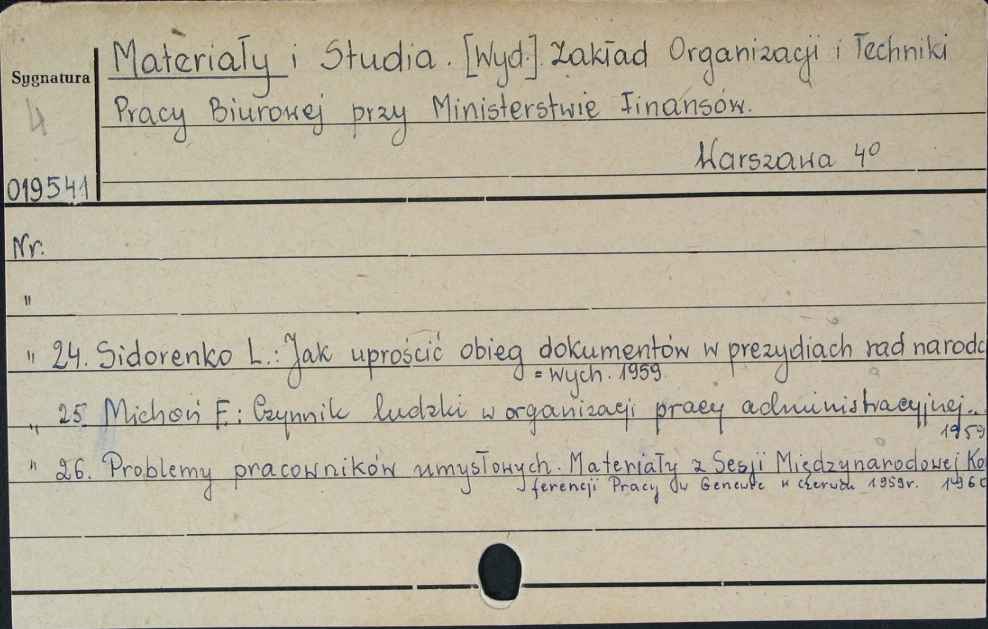 Materiały i Studia. [Wyd.] Zakład Organizacji i Techniki
Sygnatura
Pracy Biurowej przy Ministerstwie Finansów.
4
Warszawa 4°
019541
Nr.
"
" 24. Sidorenko L.: Jak uprościć obieg dokumentów w prezydiach rad narodo
= wych. 1959.
" 25. Michoń F.: Czynnik ludzki w organizacji pracy administracyjnej..
1959
" 26. Problemy pracowników umysłowych. Materiały z Sesji Międzynarodowej Ko
ferencji Pracy w Genewie w czerwcu 1959r. 1960